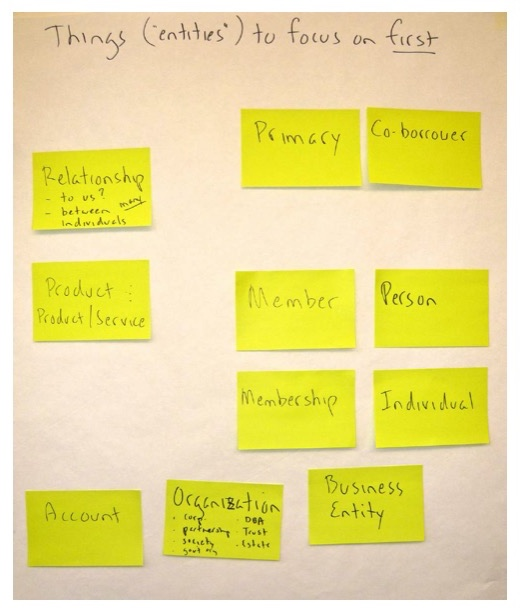 Things ("entities") to focus on first
Primary
Co-borrower
Relationship
- to us?
- between many
individuals
Product :
Product/Service
Member
Person
Membership
Individual
Account
Organization
· corp. · DBA
· partnership · Trust
· society · Estate
· govt org
Business
Entity